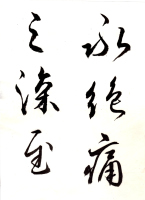 永絕痛
之深至